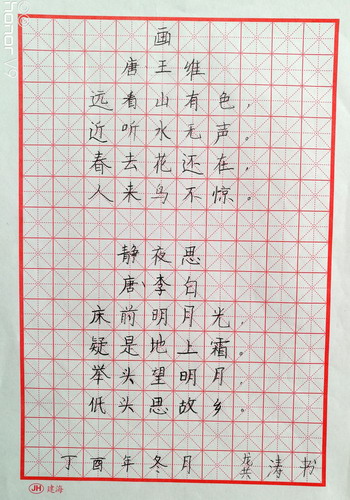 画
唐 王维
远看山有色，
近听水无声。
春去花还在，
人来鸟不惊。
静夜思
唐 李白
床前明月光，
疑是地上霜。
举头望明月，
低头思故乡。
丁酉年冬月 涛书
JH 建海
honor V9